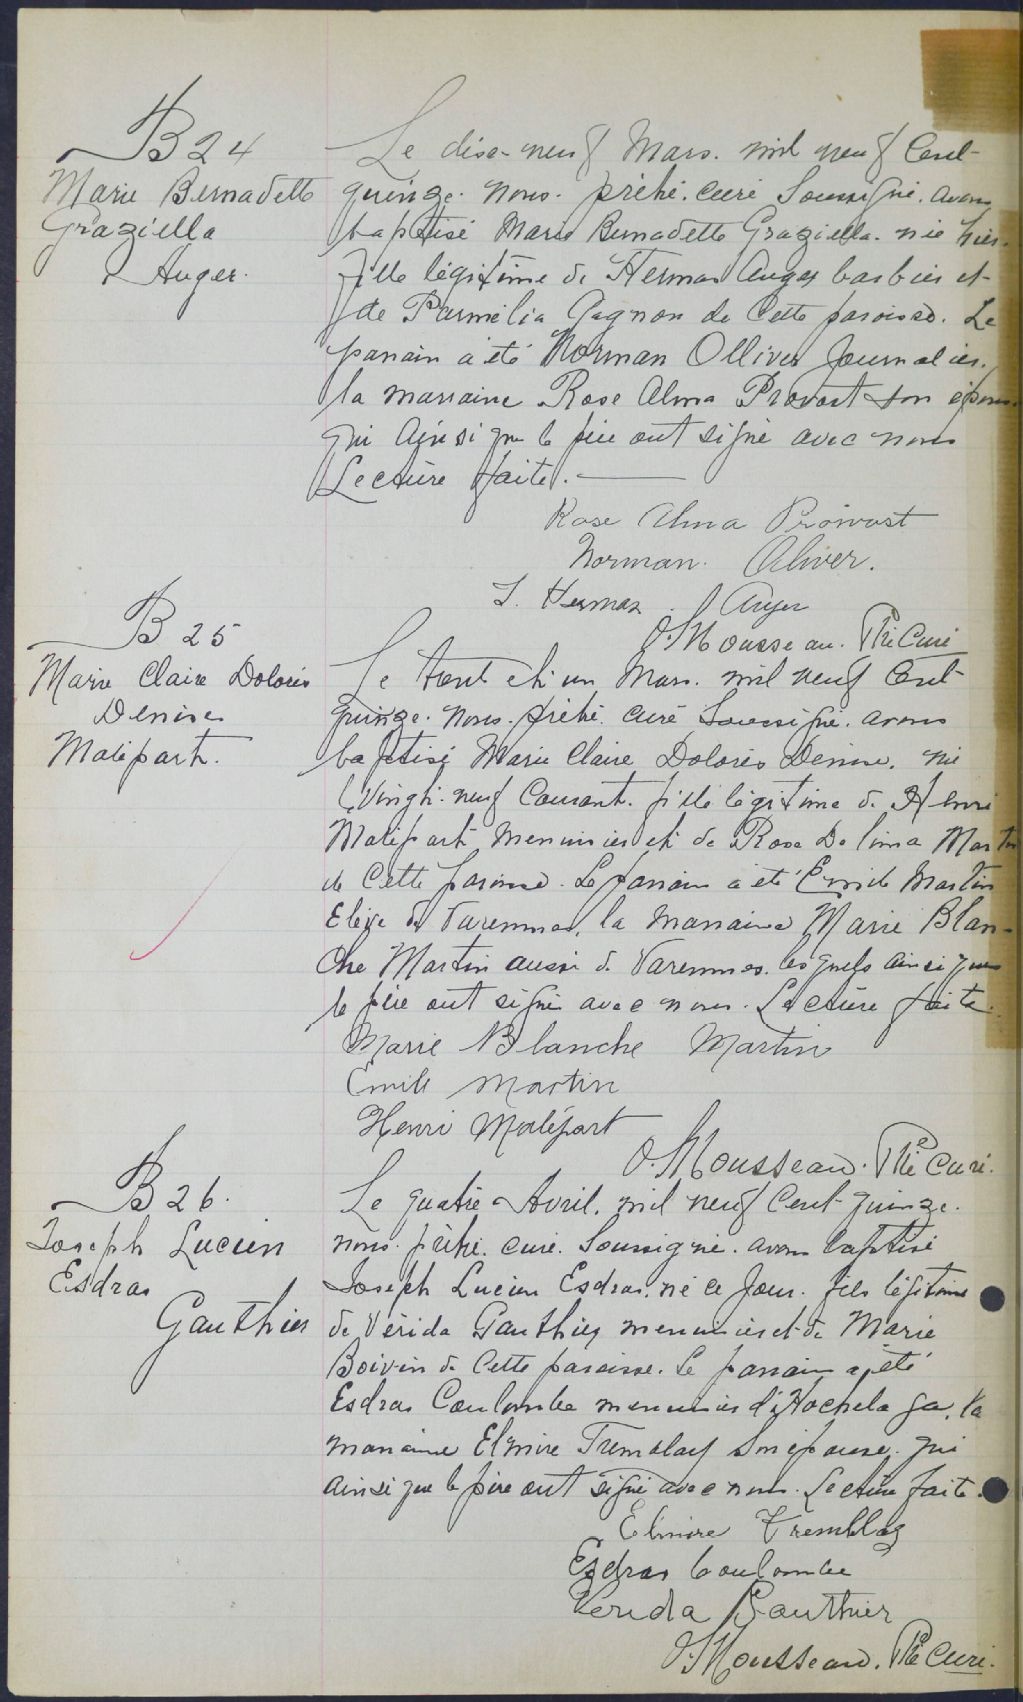 B 24
Marie Bernadette
Graziella
Auger.
Le dix-neuf Mars. mil neuf Cent-
quinze. nous. prêtre. curé Soussigné. avons
baptisé Marie Bernadette Graziella. née hier.
fille légitime de Hermas Auger barbier et
de Parmélia Gagnon de Cette paroisse. Le
parrain a été Norman Olliver Journalier.
la marraine Rose Alma Provost son épouse.
qui Ainsi que le père ont signé avec nous
Lecture faite.
Rose Alma Provost
Norman. Oliver.
Hermas Auger
O. Mousseau. Ptre Curé
B 25
Marie Claire Dolorès
Denise
Malépart.
Le trente et un Mars. mil neuf Cent-
quinze. nous. prêtre. curé Soussigné. avons
baptisé Marie Claire Dolorès Denise. née
le Vingt-neuf Courant. fille légitime de Henri
Malépart menuisier et de Rose Delima Martin
de Cette paroisse. Le parrain a été Emile Martin
Elève de Varennes, la marraine Marie Blan-
che Martin aussi de Varennes. lesquels ainsi que
le père ont signé avec nous. Lecture faite.
Marie Blanche Martin
Emile Martin
Henri Malépart
O. Mousseau. Ptre Curé.
B 26.
Joseph Lucien
Esdras
Gauthier
Le quatre Avril. mil neuf Cent-quinze.
nous. prêtre. curé. Soussigné. avons baptisé
Joseph Lucien Esdras. né ce Jour. fils légitime
de Vérida Gauthier menuisier et de Marie
Boivin de Cette paroisse. Le parrain a été
Esdras Coulombe menuisier d'Hochelaga, la
marraine Elmire Tremblay Son épouse. qui
ainsi que le père ont signé avec nous. Lecture faite.
Elmire Tremblay
Esdras Coulombe
Verida Gauthier
O. Mousseau. Ptre Curé.